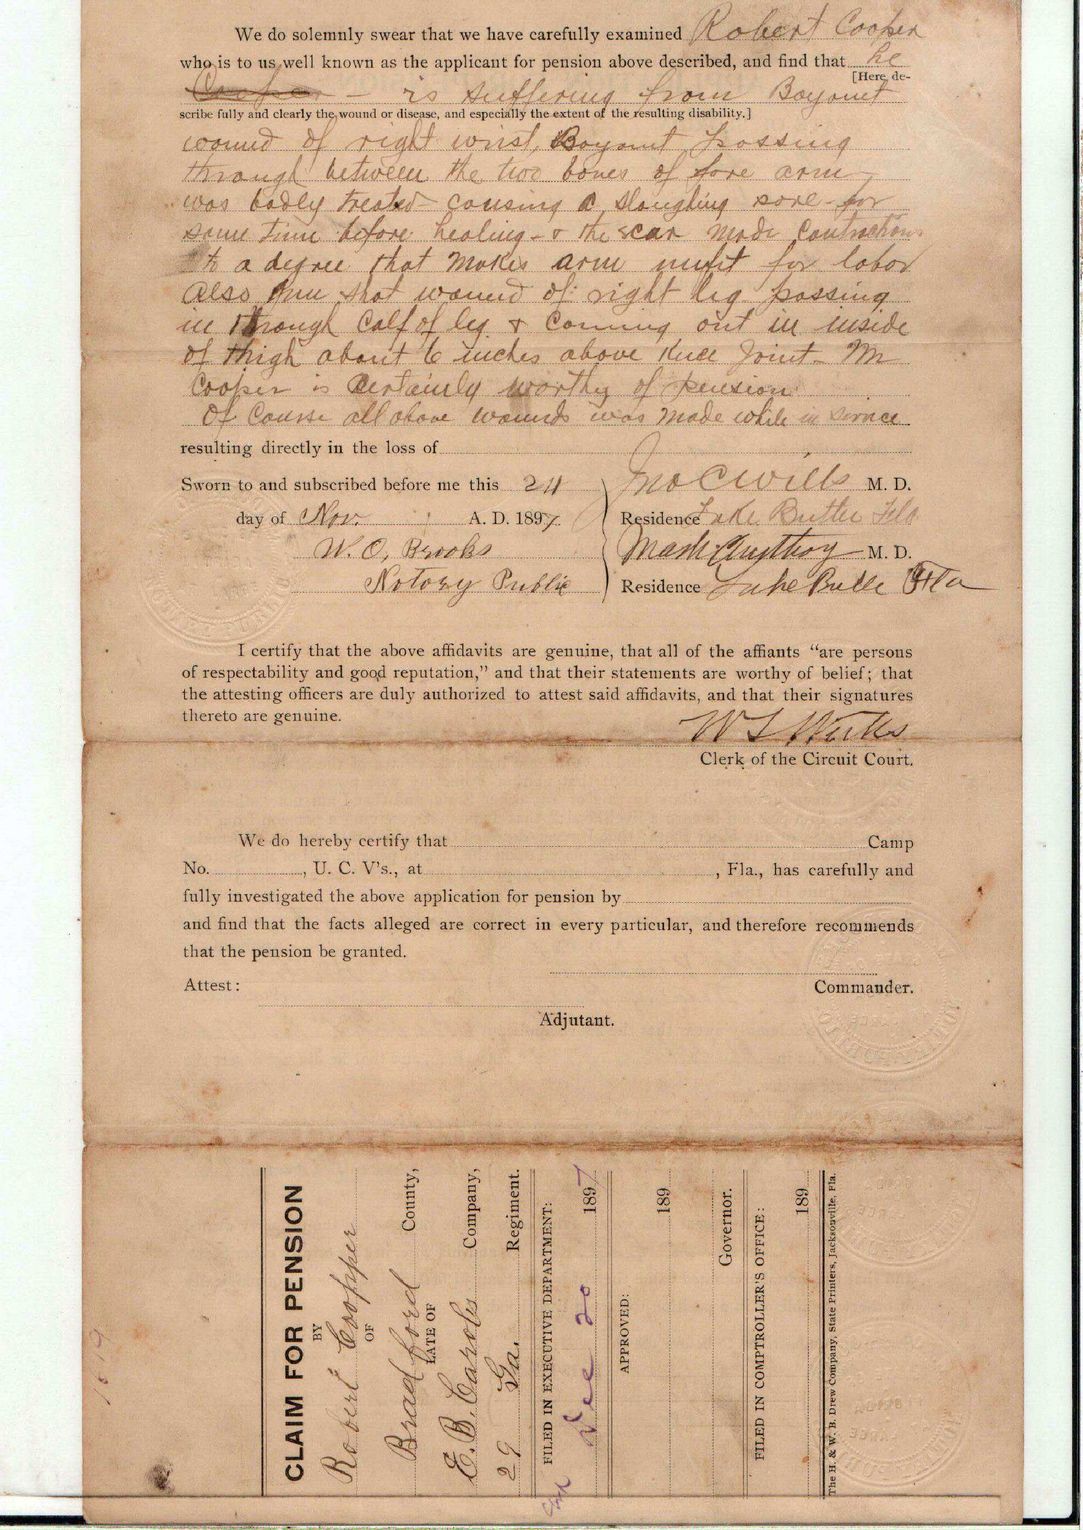 We do solemnly swear that we have carefully examined Robert Cooper
who is to us well known as the applicant for pension above described, and find that he
[Here, de-
Cooper - is suffering from Bayonet
scribe fully and clearly the wound or disease, and especially the extent of the resulting disability.]
wound of right wrist, Bayonet passing
through between the two bones of fore arm
was badly treated causing a sloughing sore - for
some time before healing - & the scar made contractions
to a degree that makes arm unfit for labor
also Gun shot wound of right leg passing
in through calf of leg & coming out in inside
of thigh about 6 inches above knee joint - Mr
Cooper is certainly worthy of pension
Of course all above wounds was made while in service
resulting directly in the loss of
Sworn to and subscribed before me this 24
day of Nov. A. D. 1897
W. O. Brooks
Notory Public
Jno C Wills M. D.
Residence Lake Butler Fla
Mark Anythoy M. D.
Residence Lake Butle Fla
I certify that the above affidavits are genuine, that all of the affiants "are persons
of respectability and good reputation," and that their statements are worthy of belief; that
the attesting officers are duly authorized to attest said affidavits, and that their signatures
thereto are genuine.
W L
Clerk of the Circuit Court.
We do hereby certify that Camp
No. , U. C. V's., at , Fla., has carefully and
fully investigated the above application for pension by
and find that the facts alleged are correct in every particular, and therefore recommends
that the pension be granted.
Attest:
Commander.
Adjutant.
CLAIM FOR PENSION
BY
Robert Coopper
OF
Bradford County,
LATE OF
E. B. Company,
29 Ga. Regiment.
FILED IN EXECUTIVE DEPARTMENT:
Dec 20 1897
APPROVED:
189
Governor.
FILED IN COMPTROLLER'S OFFICE:
189
The H. & W. B. Drew Company, State Printers, Jacksonville, Fla.